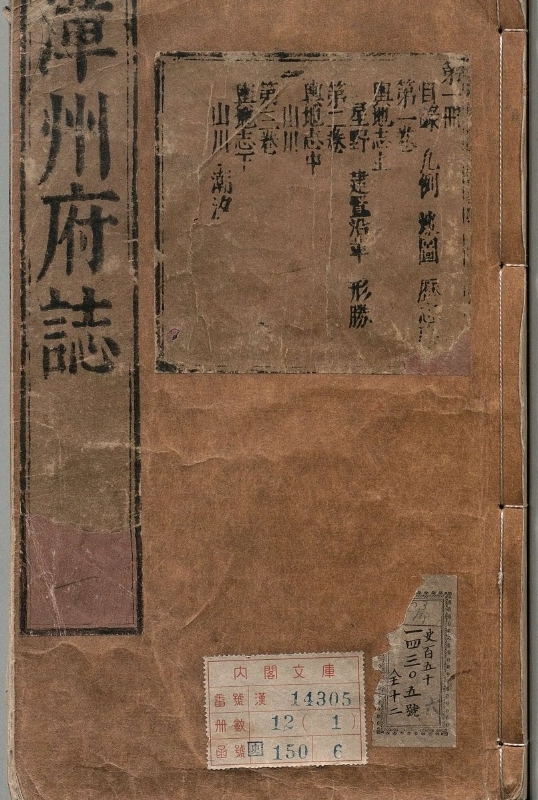 漳州府誌
一
第一冊
目錄 凡例 地圖
第一卷
輿地志上
星野 建置沿革 形勝
第二卷
輿地志中
山川
第三卷
輿地志下
山川 潮汐
史百五十
一四三〇五號
仝十二
六
內閣文庫
番號 漢 14305
冊數 12(1)
函號 150 6